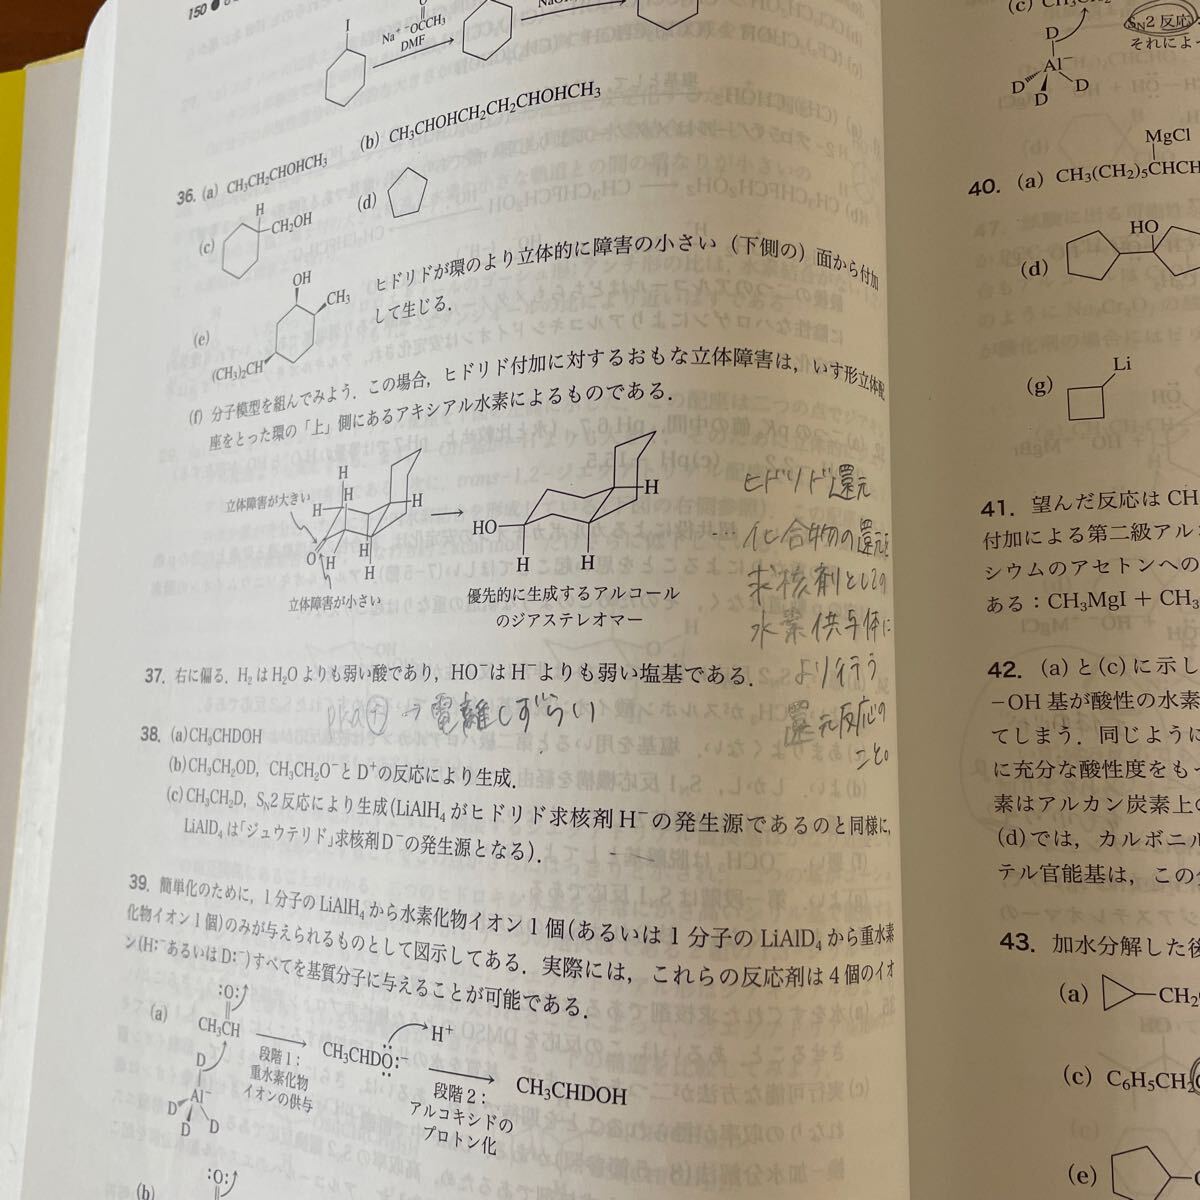 150
I
Na⁺ ⁻OCCH₃
DMF
36. (a) CH₃CH₂CHOHCH₃ (b) CH₃CHOHCH₂CH₂CHOHCH₃
(c) H CH₂OH (d)
(e) OH CH₃ (CH₃)₂CH
ヒドリドが環のより立体的に障害の小さい（下側の）面から付加
して生じる.
(f) 分子模型を組んでみよう. この場合, ヒドリド付加に対するおもな立体障害は, いす形立体配
座をとった環の「上」側にあるアキシアル水素によるものである.
立体障害が大きい H H H
O H H H
立体障害が小さい
HO H H H
優先的に生成するアルコール
のジアステレオマー
ヒドリド還元
… 化合物の還元を
求核剤としての
水素供与体に
より行う
還元反応の
こと。
37. 右に偏る. H₂ は H₂O よりも弱い酸であり, HO⁻ は H⁻ よりも弱い塩基である.
pka⊕ → 電離しずらい
38. (a) CH₃CHDOH
(b) CH₃CH₂OD, CH₃CH₂O⁻ と D⁺ の反応により生成.
(c) CH₃CH₂D, Sɴ2 反応により生成(LiAlH₄ がヒドリド求核剤 H⁻ の発生源であるのと同様に,
LiAlD₄ は「ジュウテリド」求核剤 D⁻ の発生源となる).
39. 簡単化のために, 1 分子の LiAlH₄ から水素化物イオン 1 個(あるいは 1 分子の LiAlD₄ から重水素
化物イオン 1 個)のみが与えられるものとして図示してある. 実際には, これらの反応剤は 4 個のイオ
ン(H:⁻ あるいは D:⁻)すべてを基質分子に与えることが可能である.
(a) :O:
CH₃CH
D
Al⁻
D D D
段階 1：
重水素化物
イオンの供与
CH₃CHDO:⁻ H⁺
段階 2：
アルコキシドの
プロトン化
CH₃CHDOH
(b) :O:
(c)
Sɴ2 反応
それによっ
D
Al⁻
D D D
MgCl
40. (a) CH₃(CH₂)₅CHCH
(d) HO
(g) Li
41. 望んだ反応は CH
付加による第二級アル
シウムのアセトンへの
ある：CH₃MgI + CH₃
42. (a) と (c) に示し
−OH 基が酸性の水素
てしまう. 同じように
に充分な酸性度をもっ
素はアルカン炭素上の
(d) では, カルボニル
テル官能基は, この
43. 加水分解した後
(a) CH₂
(c) C₆H₅CH₂
(e)